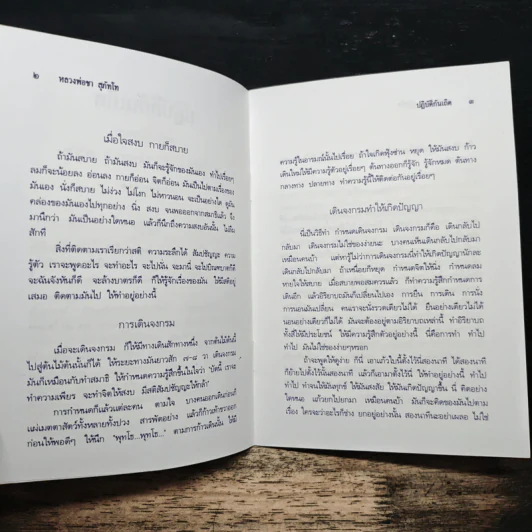 ๒ หลวงพ่อชา สุภัทโท
เมื่อใจสงบ กายก็สบาย
ถ้ามันสบาย ถ้ามันสงบ มันก็จะรู้จักของมันเอง ทำไปเรื่อยๆ
ลมก็จะน้อยลง อ่อนลง กายก็อ่อน จิตก็อ่อน มันเป็นไปตามเรื่องของ
มันเอง นั่งก็สบาย ไม่ง่วง ไม่โงก ไม่หาวนอน จะเป็นอย่างใด ดูมัน
คล่องของมันเองไปทุกอย่าง นิ่ง สงบ จนพอออกจากสมาธิแล้ว จึง
มานึกว่า มันเป็นอย่างใดหนอ แล้วก็นึกถึงความสงบอันนั้น ไม่ลืม
สักที
สิ่งที่ติดตามเราเรียกว่าสติ ความระลึกได้ สัมปชัญญะ ความ
รู้ตัว เราจะพูดอะไร จะทำอะไร จะไปนั่น จะมานี่ จะไปบิณฑบาตก็ดี
จะฉันจังหันก็ดี จะล้างบาตรก็ดี ก็ให้รู้จักเรื่องของมัน ให้มีสติอยู่
เสมอ ติดตามมันไป ให้ทำอยู่อย่างนี้
การเดินจงกรม
เมื่อจะเดินจงกรม ก็ให้มีทางเดินสักทางหนึ่ง จากต้นไม้ต้นนี้
ไปสู่ต้นไม้ต้นนั้นก็ได้ ให้ระยะทางมันยาวสัก ๗-๘ วา เดินจงกรม
มันก็เหมือนกับทำสมาธิ ให้กำหนดความรู้สึกขึ้นในใจว่า "บัดนี้ เราจะ
ทำความเพียร จะทำจิตให้สงบ มีสติสัมปชัญญะให้กล้า"
การกำหนดก็แล้วแต่ละคน ตามใจ บางคนออกเดินก่อนก็
แผ่เมตตาสัตว์ทั้งหลายทั้งปวง สารพัดอย่าง แล้วก็ก้าวเท้าขวาออก
ก่อนให้พอดีๆ ให้นึก "พุทโธ...พุทโธ..." ตามการก้าวเดินนั้น ให้มี
ปฏิบัติกันเถิด ๓
ความรู้ในอารมณ์นั้นไปเรื่อย ถ้าใจเกิดฟุ้งซ่าน หยุด ให้มันสงบ ก้าว
เดินใหม่ให้มีความรู้ตัวอยู่เรื่อยๆ ต้นทางออกก็รู้จัก รู้จักหมด ต้นทาง
กลางทาง ปลายทาง ทำความรู้นี้ให้ติดต่อกันอยู่เรื่อยๆ
เดินจงกรมทำให้เกิดปัญญา
นี่เป็นวิธีทำ กำหนดเดินจงกรม เดินจงกรมก็คือ เดินกลับไป
กลับมา เดินจงกรมไม่ใช่ของง่ายนะ บางคนเห็นเดินกลับไปกลับมา
เหมือนคนบ้า แต่หารู้ไม่ว่าการเดินจงกรมนี่ทำให้เกิดปัญญานักละ
เดินกลับไปกลับมา ถ้าเหนื่อยก็หยุด กำหนดจิตให้นิ่ง กำหนดลม
หายใจให้สบาย เมื่อสบายพอสมควรแล้ว ก็ทำความรู้สึกกำหนดการ
เดินอีก แล้วอิริยาบถมันก็เปลี่ยนไปเอง การยืน การเดิน การนั่ง
การนอนมันเปลี่ยน คนเราจะนั่งรวดเดียวไม่ได้ ยืนอย่างเดียวไม่ได้
นอนอย่างเดียวก็ไม่ได้ มันจะต้องอยู่ตามอิริยาบถเหล่านี้ ทำอิริยาบถ
ทั้งสี่ให้มีประโยชน์ ให้มีความรู้สึกตัวอยู่อย่างนี้ นี่คือการทำ ทำไป
ทำไป มันไม่ใช่ของง่ายๆหรอก
ถ้าจะพูดให้ดูง่าย ก็นี่ เอาแก้วใบนี้ตั้งไว้นี่สองนาที ได้สองนาที
ก็ย้ายไปตั้งไว้นั้นสองนาที แล้วก็เอามาตั้งไว้นี่ ให้ทำอยู่อย่างนี้ ทำไป
ทำไป ทำจนให้มันทุกข์ ให้มันสงสัย ให้มันเกิดปัญญาขึ้น นี่ คิดอย่าง
ใดหนอ แก้วยกไปยกมา เหมือนคนบ้า มันก็จะคิดของมันไปตาม
เรื่อง ใครจะว่าอะไรก็ช่าง ยกอยู่อย่างนั้น สองนาทีนะอย่าเผลอ ไม่ใช่